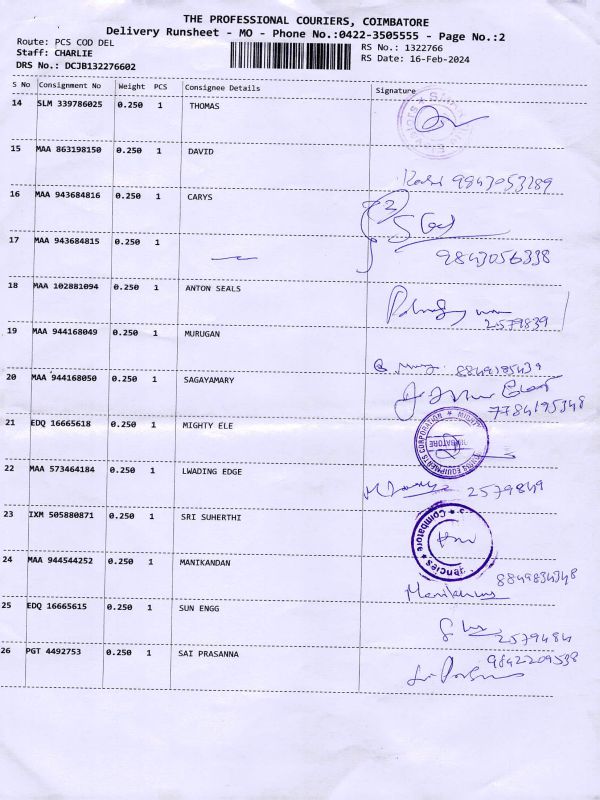 THE PROFESSIONAL COURIERS, COIMBATORE
Delivery Runsheet - MO - Phone No.:0422-3505555 - Page No.:2
Route: PCS COD DEL
RS No.: 1322766
Staff: CHARLIE
RS Date: 16-Feb-2024
DRS No.: DCJB132276602
S No Consignment No Weight PCS Consignee Details Signature
14 SLM 339786025 0.250 1 THOMAS
15 MAA 863198150 0.250 1 DAVID
9843053289
16 MAA 943684816 0.250 1 CARYS
2
17 MAA 943684815 0.250 1
9843056338
18 MAA 102881094 0.250 1 ANTON SEALS
2579839
19 MAA 944168049 0.250 1 MURUGAN
8849185439
20 MAA 944168050 0.250 1 SAGAYAMARY
7784195348
21 EDQ 16665618 0.250 1 MIGHTY ELE
22 MAA 573464184 0.250 1 LWADING EDGE
2579849
23 IXM 505880871 0.250 1 SRI SUHERTHI
Coimbatore
24 MAA 944544252 0.250 1 MANIKANDAN
8849834348
25 EDQ 16665615 0.250 1 SUN ENGG
2579484
26 PGT 4492753 0.250 1 SAI PRASANNA
9842209538